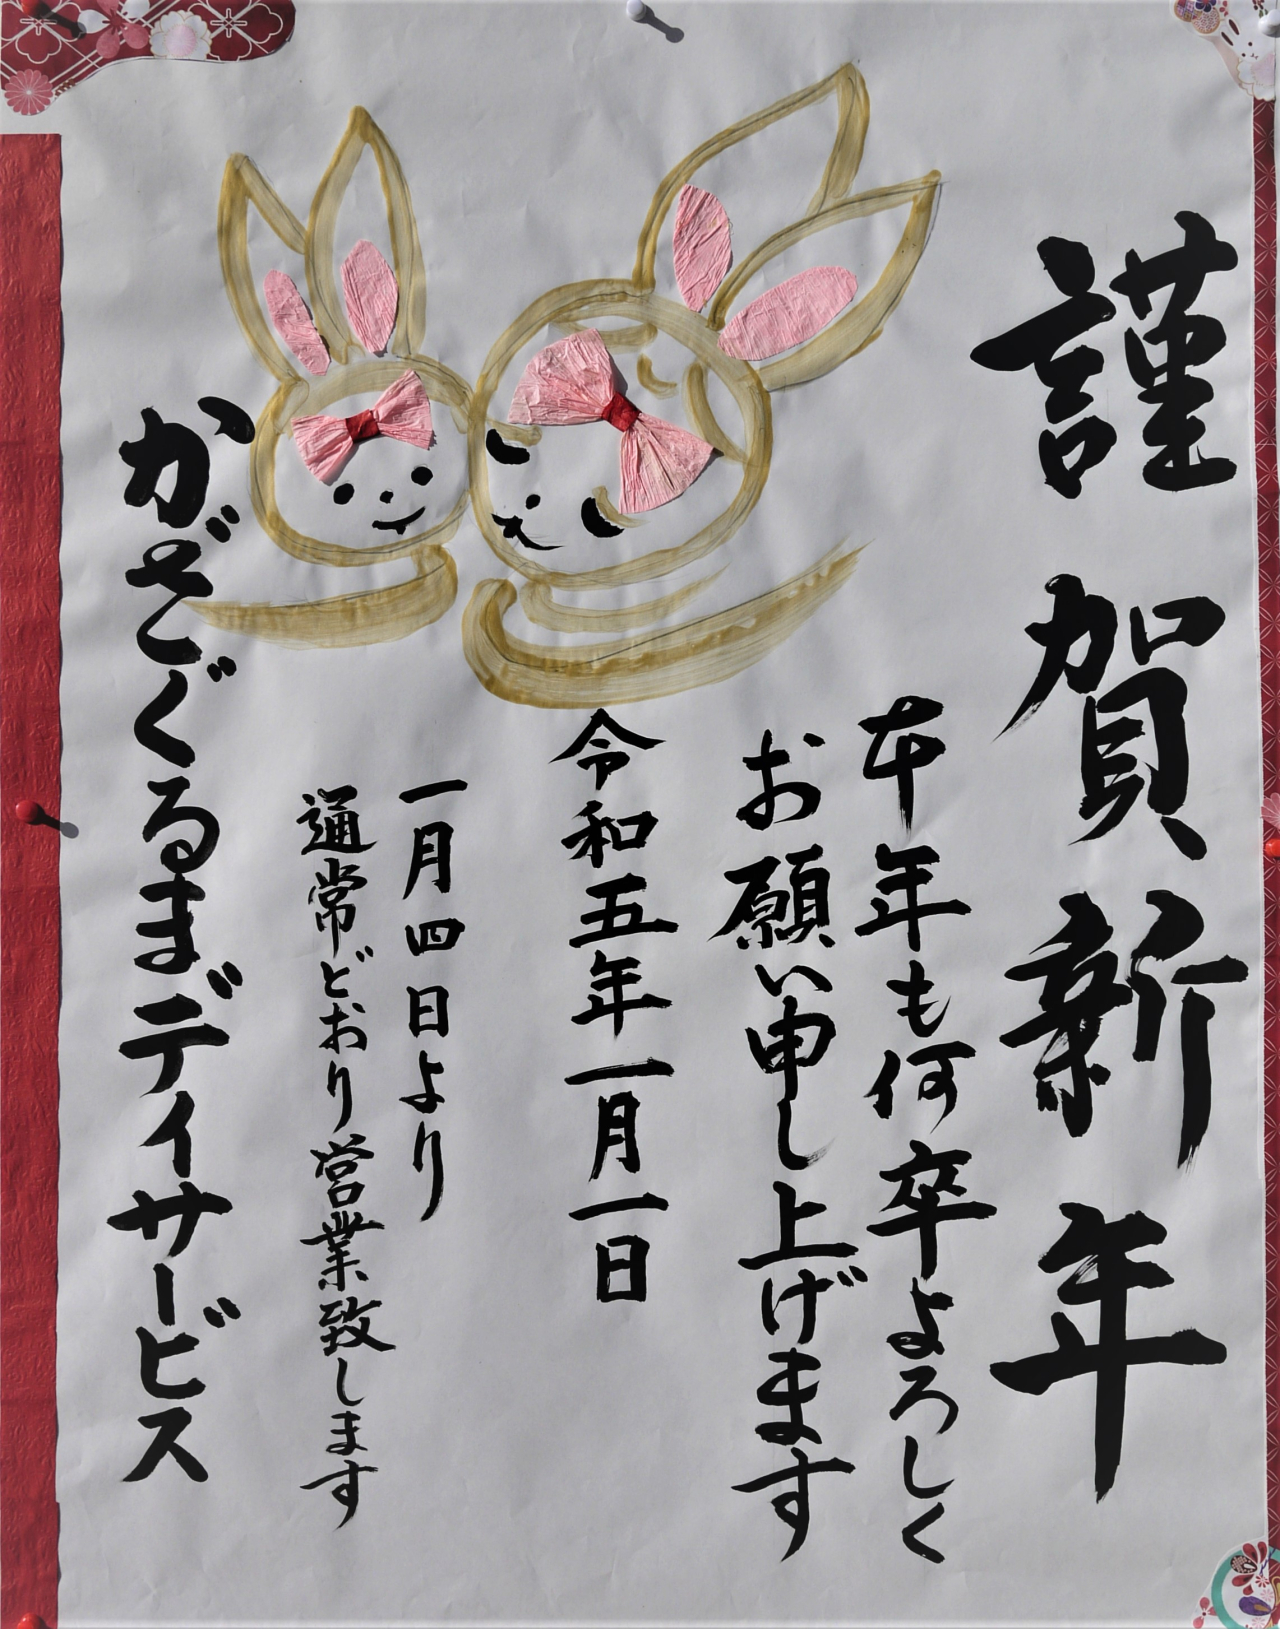 謹賀新年
本年も何卒よろしく
お願い申し上げます
令和五年一月一日
一月四日より
通常どおり営業致します
かざぐるまデイサービス